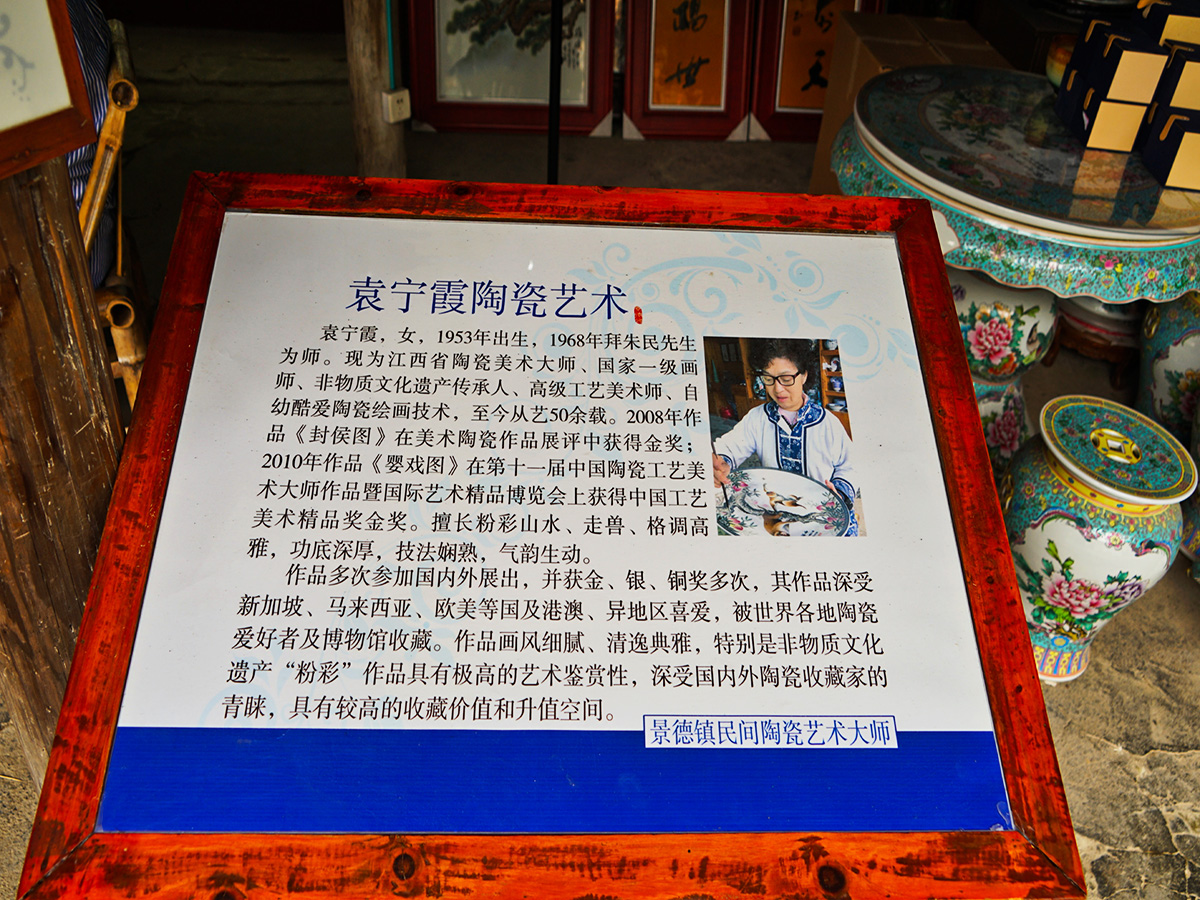 鸿
世
袁宁霞陶瓷艺术
袁宁霞，女，1953年出生，1968年拜朱民先生
为师。现为江西省陶瓷美术大师、国家一级画
师、非物质文化遗产传承人、高级工艺美术师、自
幼酷爱陶瓷绘画技术，至今从艺50余载。2008年作
品《封侯图》在美术陶瓷作品展评中获得金奖；
2010年作品《婴戏图》在第十一届中国陶瓷工艺美
术大师作品暨国际艺术精品博览会上获得中国工艺
美术精品奖金奖。擅长粉彩山水、走兽、格调高
雅，功底深厚，技法娴熟，气韵生动。
作品多次参加国内外展出，并获金、银、铜奖多次，其作品深受
新加坡、马来西亚、欧美等国及港澳、异地区喜爱，被世界各地陶瓷
爱好者及博物馆收藏。作品画风细腻、清逸典雅，特别是非物质文化
遗产“粉彩”作品具有极高的艺术鉴赏性，深受国内外陶瓷收藏家的
青睐，具有较高的收藏价值和升值空间。
景德镇民间陶瓷艺术大师